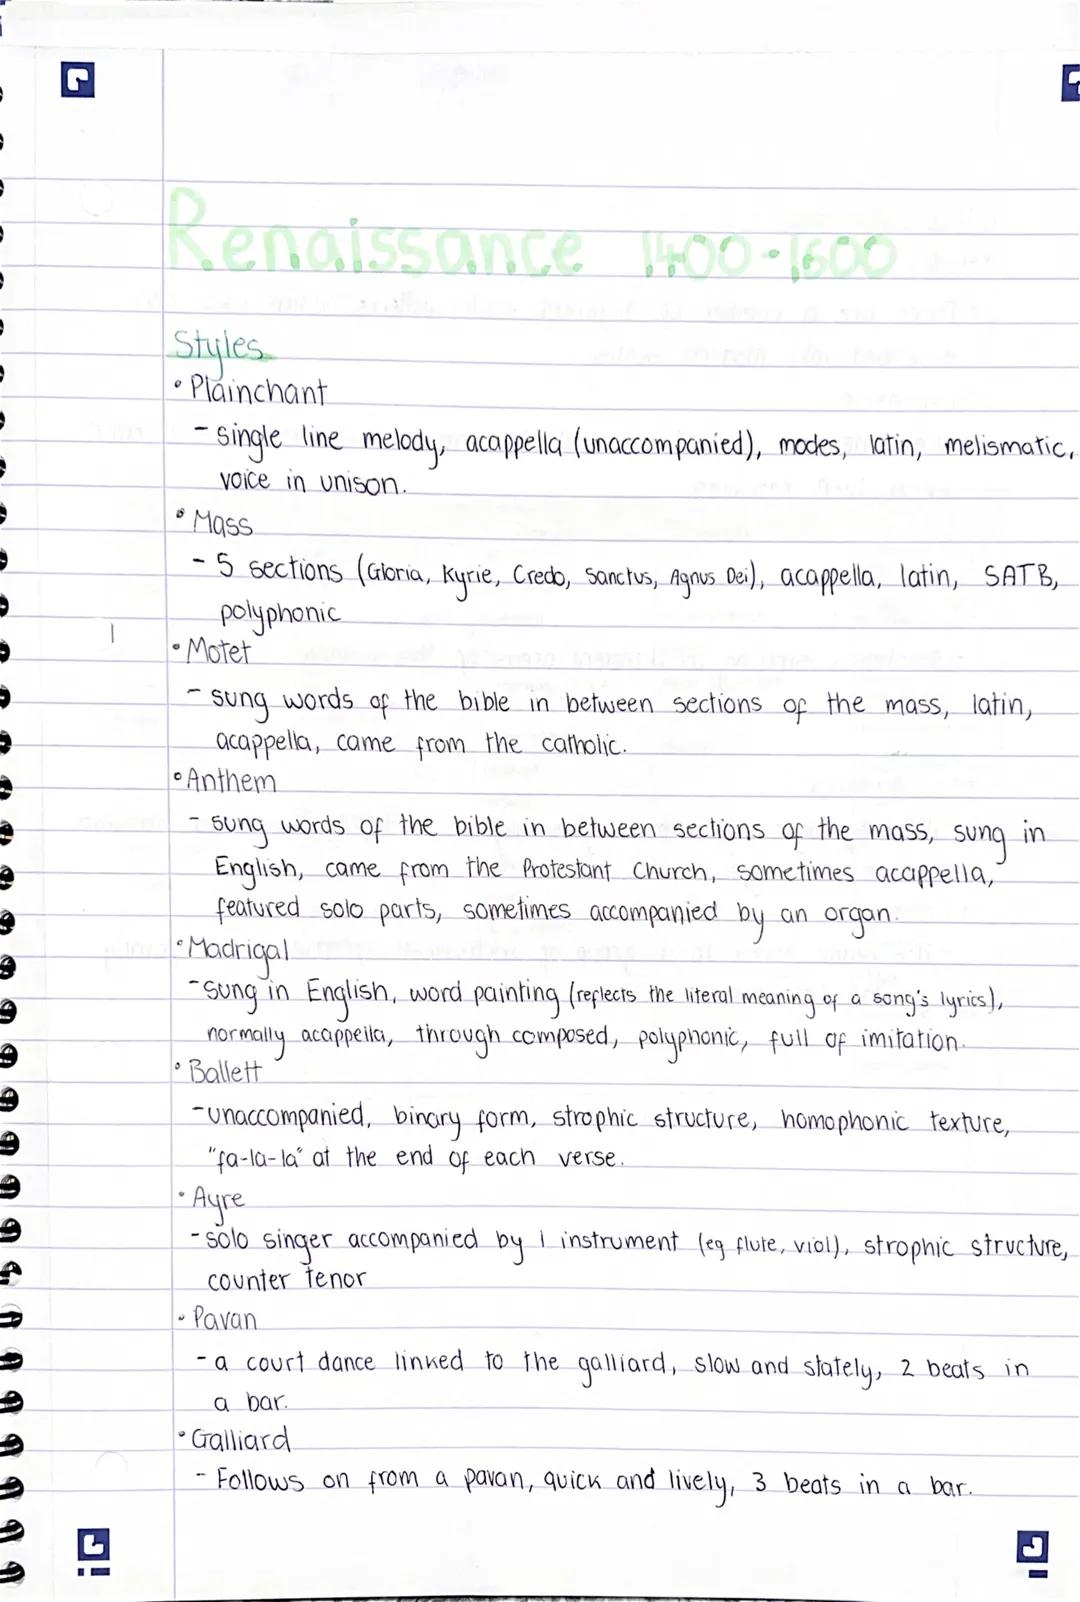 Renaissance 1400-1600
Styles
• Plainchant
- single line melody, acappella (unaccompanied), modes, latin, melismatic,
voice in unison.
• Mass
- 5 sections (Gloria, Kyrie, Credo, Sanctus, Agnus Dei), acappella, latin, SATB,
polyphonic
• Motet
- sung words of the bible in between sections of the mass, latin,
acappella, came from the catholic.
• Anthem
- sung words of the bible in between sections of the mass, sung in
English, came from the Protestant Church, sometimes acappella,
featured solo parts, sometimes accompanied by an organ.
• Madrigal
- sung in English, word painting (reflects the literal meaning of a song's lyrics),
normally acappella, through composed, polyphonic, full of imitation.
• Ballett
- unaccompanied, binary form, strophic structure, homophonic texture,
"fa-la-la" at the end of each verse.
• Ayre
- solo singer accompanied by 1 instrument (eg flute, viol), strophic structure,
counter tenor
• Pavan
- a court dance linked to the galliard, slow and stately, 2 beats in
a bar.
• Galliard
- Follows on from a pavan, quick and lively, 3 beats in a bar.